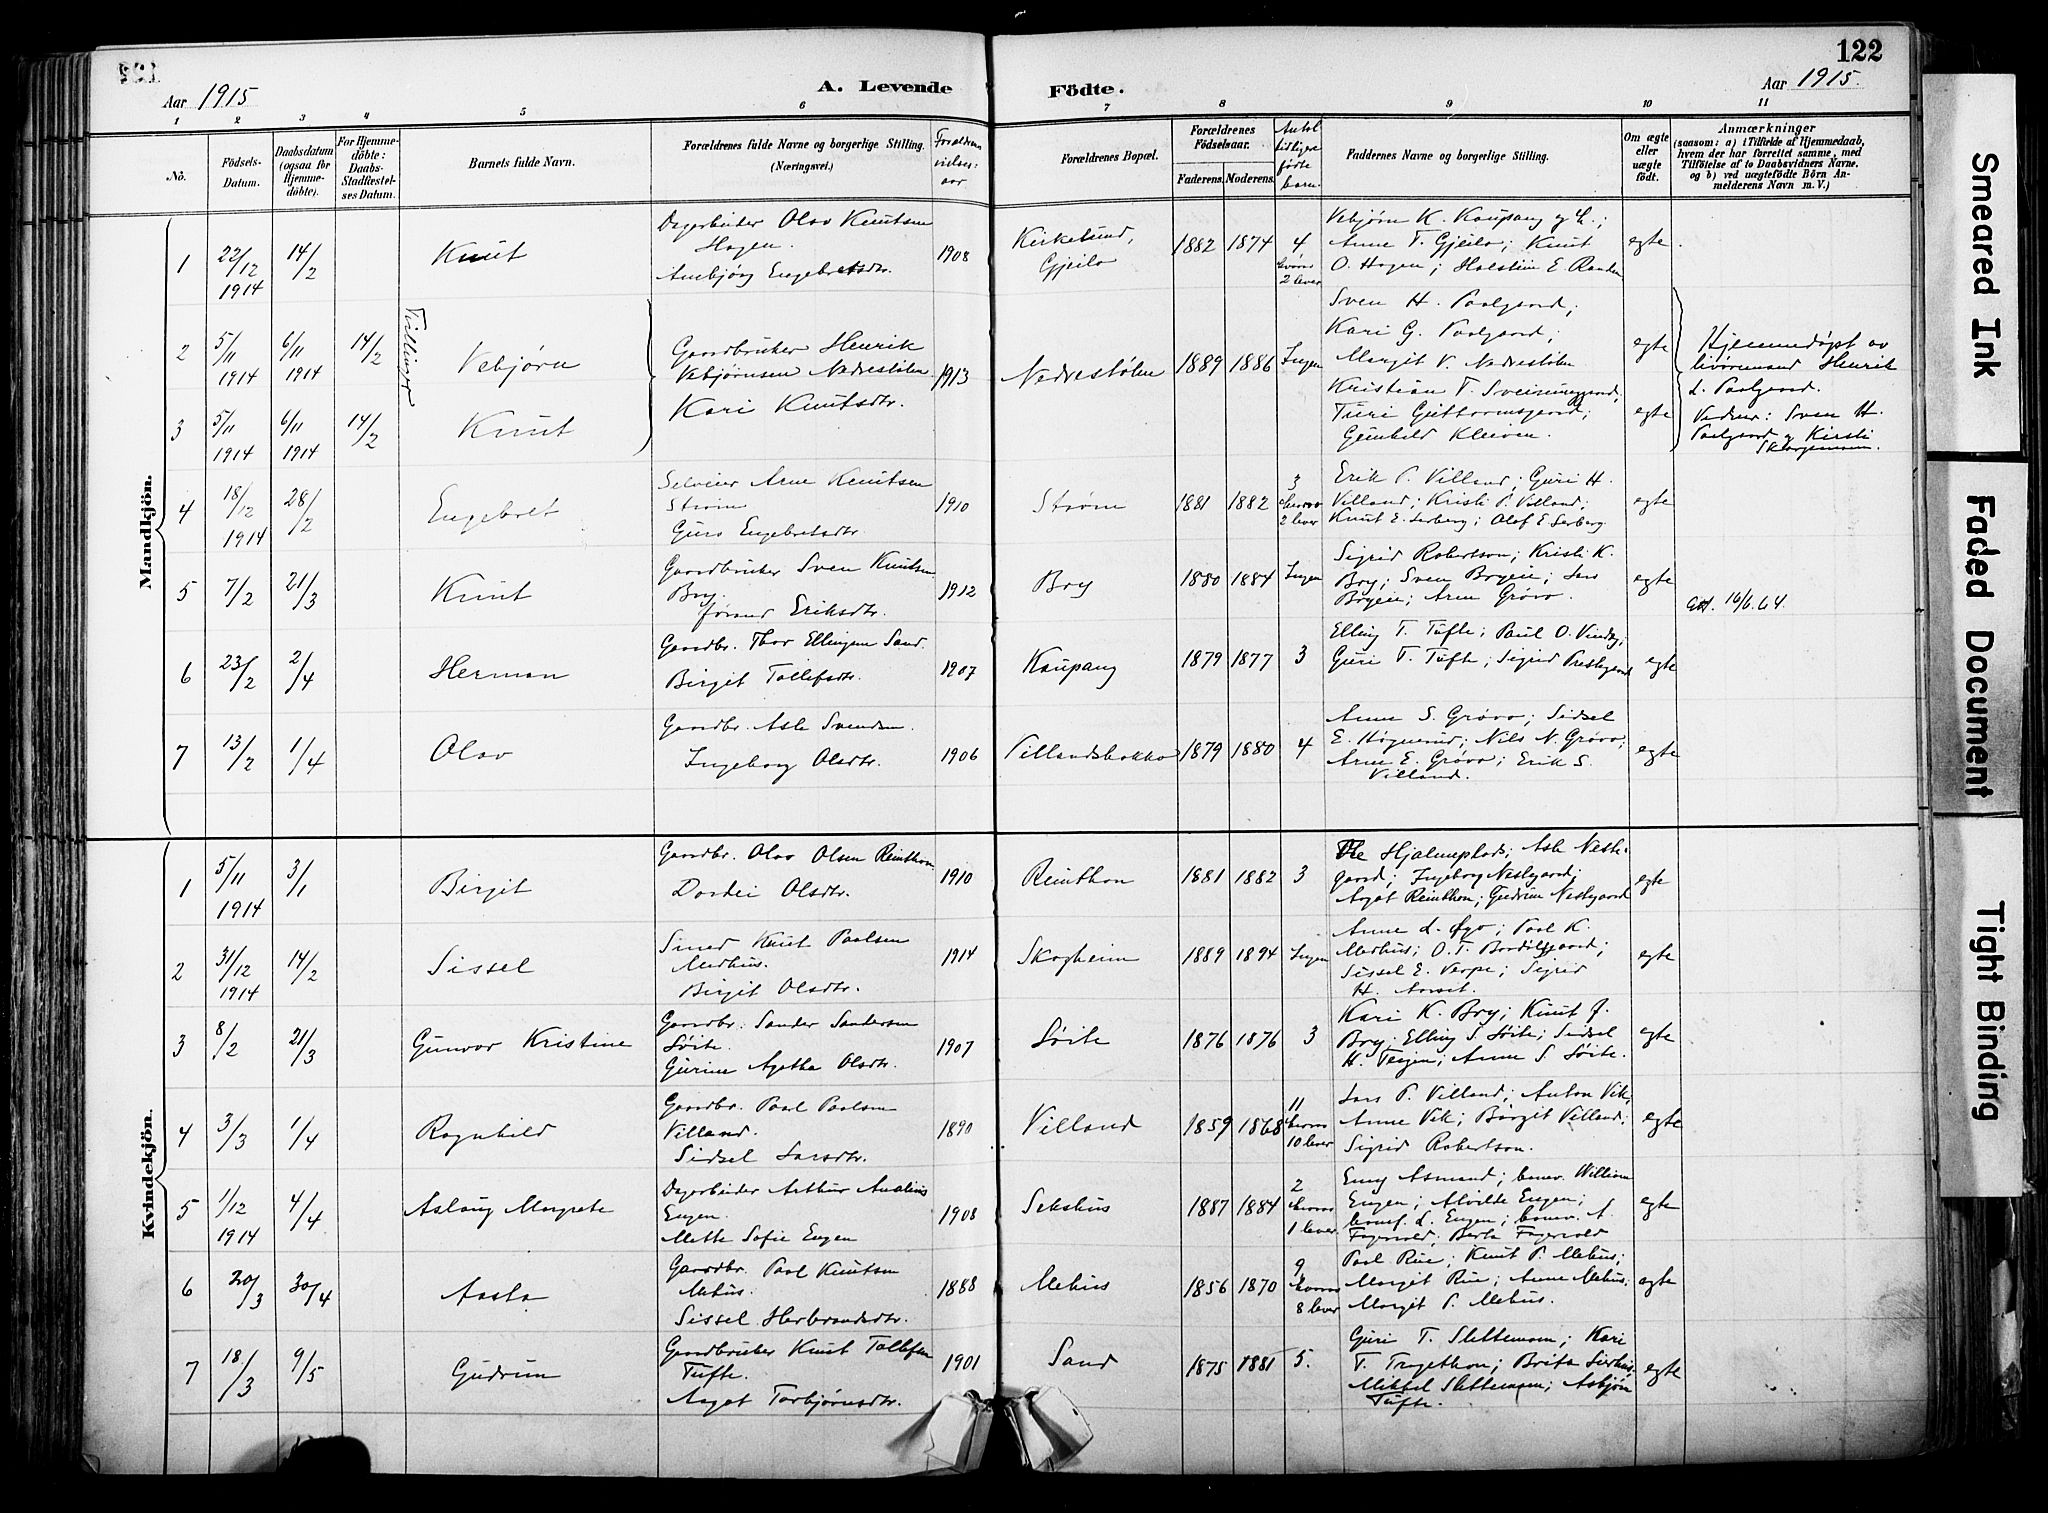 122
Aar 1915 A. Levende Födte. Aar 1915.
1 2 3 4 5 6 7 8 9 10 11
No.
Födsels-Datum.
Daabsdatum (ogsaa for Hjemme-döbte).
For Hjemme-döbte: Daabs-Stadfæstel-ses Datum.
Barnets fulde Navn.
Forældrenes fulde Navne og borgerlige Stilling.
(Næringsvei.)
Forældrenes Bopæl.
Forældrenes Födselsaar.
Faderens. Moderens.
Antal tidligere fødte barn.
Faddernes Navne og borgerlige Stilling.
Om ægte eller uægte födt.
Anmærkninger
(saasom: a) i Tilfælde af Hjemmedaab, hvem der har forrettet samme, med Tilföielse af to Daabsvidners Navne. og b) ved uægtefödte Börn An-melderens Navn m. V.)
Mandkjön.
1 22/12 1914 14/2 Knut
Dagarbeider Olav Knutsen
Hagen.
Annbjørg Engebretsdtr.
1908 Kirkelund, Gjeilo 1882 1874 4 hvorav 2 lever
Vebjørn K. Kaupang og h.;
Anne T. Gjeilo; Knut
O. Hagen; Holstein E. Randen
egte.
Tvillinger
2 5/11 1914 6/11 1914 14/2 Vebjørn
Gaardbruker Henrik
Vebjørnsen Nedrestølen
Kari Knutsdtr.
1913 Nedrestølen 1889 1886 Ingen
Sven H. Paalgaard;
Kari G. Paalgaard;
Margit V. Nedrestølen
egte
Hjemmedøpt av
Henrik
L. Paalgaard.
Vidner: Sven H.
Paalgaard og Kirsti
3 5/11 1914 6/11 1914 14/2 Knut
Kristian T. Sveinunggaard,
Turi Guttormsgaard;
Gunhild Kleiven.
egte
4 18/12 1914 28/2 Engebret
Selveier Arne Knutsen
Strøm
Guro Engebretsdtr.
1910 Strøm 1881 1882 3 hvorav 2 lever
Erik P. Villand; Guri H.
Villand; Kristi P. Villand;
Knut E. Lerberg; Olaf E. Lerberg
egte
5 7/2 21/3 Knut
Gaardbruker Sven Knutsen
Bry.
Jørand Eriksdtr.
1912 Bry 1880 1884 Ingen
Sigrid Robertson; Kristi K.
Bry; Sven Bryein; Lars
Bryein; Arne Grøvo.
egte
16/6.64.
6 23/2 2/4 Herman
Gaardbr. Thor Ellingsen Sand.
Birgit Tollefsdtr.
1907 Kaupang 1879 1877 3
Elling T. Tufte; Paul O. Vindeg;
Guri T. Tufte; Sigrid Prestegaard
egte
7 13/2 1/4 Olav
Gaardbr. Asle Svendsen
Ingeborg Olsdtr.
1906 Villandsbakko 1879 1880 4
Anne S. Grøvo; Sidsel
E. Høgnerud; Nils N. Grøvo;
Arne E. Grøvo; Erik S.
Villand.
egte
Kvindekjön.
1 5/11 1914 3/1 Birgit
Gaardbr. Olav Olsen Reinthon
Dordei Olsdtr.
1910 Reinthon 1881 1882 3
Ole Hjalmeplads; Asle Neste-
gaard; Ingeborg Neslegaard;
Aagot Reinthon; Gudrun Neslegaard
egte
2 31/12 1914 14/2 Sissel
Smed Knut Paalsen
Medhus.
Birgit Olsdtr.
1914 Skogheim 1889 1894 Ingen
Anne L. Øyo; Paal K.
Medhus; O. T. Baardslgaard;
Sissel E. Verpe; Sigrid
H. Aarset.
egte
3 8/2 21/3 Gunvor Kristine
Gaardbr. Sander Sandersen
Løite.
Gurine Agathe Olsdtr.
1907 Løite 1876 1876 3
Kari K. Bry; Knut J.
Bry; Elling S. Løite; Sidsel
H. Terjen; Anne S. Løite.
egte
4 3/3 1/4 Ragnhild
Gaardbr. Paal Paalsen
Villand.
Sidsel Larsdtr.
1890 Villand 1859 1868 11 hvorav 10 lever
Lars P. Villand; Anton Vik,
Anne Vik; Birgit Villand;
Sigrid Robertson.
egte
5 1/12 1914 4/4 Aslaug Margrete
Dagarbeider Arthur
Engen.
Mette Sofie Engen
1908 Sekshus 1887 1884 2 hvorav 1 lever
Emy Asmand; banev. William
Engen; Alvilde Engen;
banef. L. Engen; banev. A.
Fagervold; Berta Fagervold
egte
6 20/3 30/4 Aasta
Gaardbr. Paal Knutsen
Mehus.
Sissel Herbrandsdtr.
1888 Mehus 1856 1870 9 hvorav 8 lever
Paal Rue; Knut P. Mehus;
Margit Rue; Anne Mehus;
Margit P. Mehus.
egte
7 18/3 9/5 Gudrun
Gaardbruker Knut Tollefsen
Tufte.
Aagot Torbjørnsdtr.
1901 Sand 1875 1881 5.
Guri T. Slettemoen; Kari
T. Trogethon; Brita
Mikkel Slettemoen; Asbjørn
Tufte.
egte
Smeared Ink
Faded Document
Tight Binding